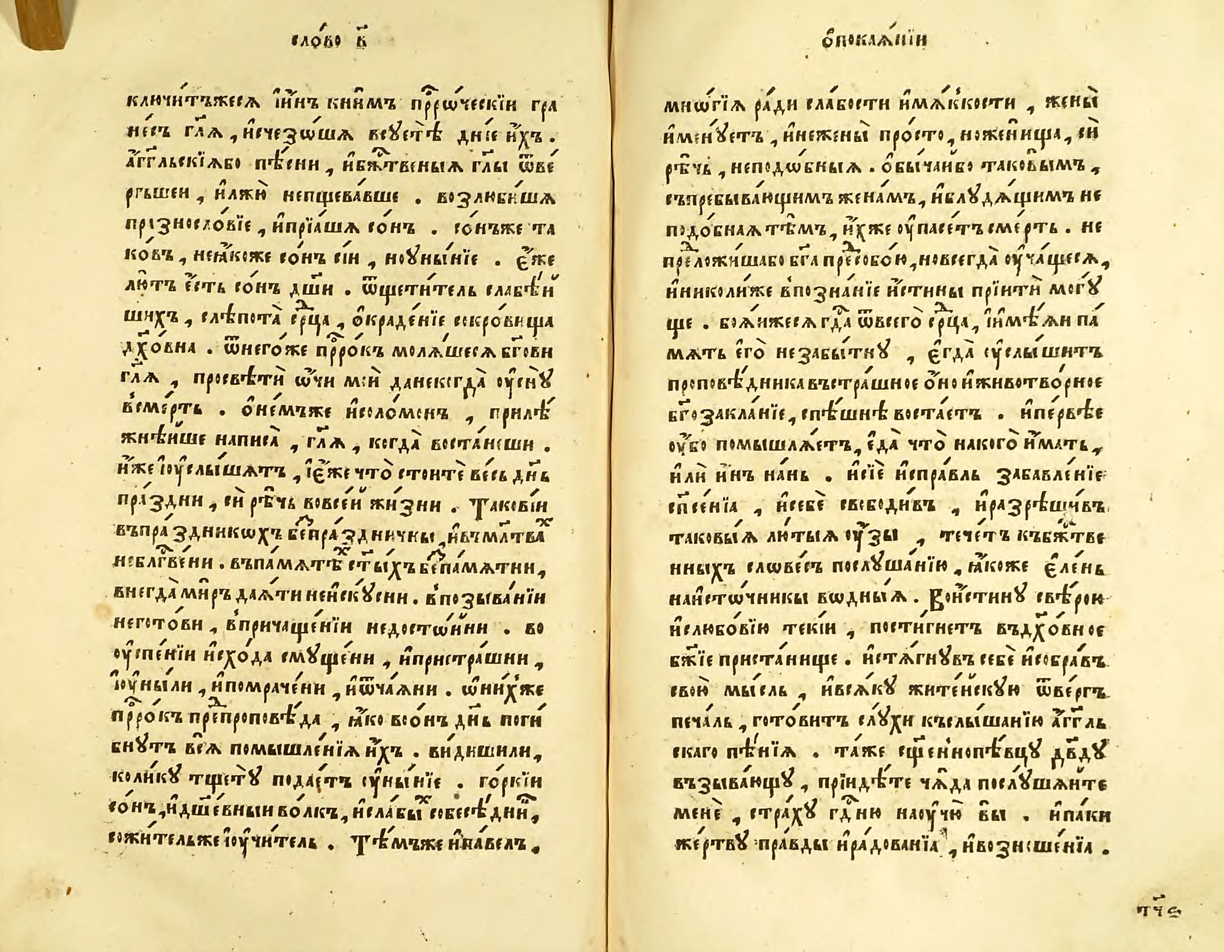 сло́во в҃
ключи́тъжеся і҆и҆нъ кни́мъ прⷪ҇рѡческїи гра
не́съ гл҃я , и҆счезѡ́шя всꙋетѣ̀ дні́е и҆́хъ .
а҆́гг҃льскїябо пѣ́сни , и҆бж҃твеныя гл҃ы ѿве
ргъшеи , и҆лжѝ непщева́вше . возлюби́шя
пра́знословїе , и҆прїа́шя со́нъ . со́нъже та
ко́въ , неꙗ҆́коже со́нъ сїи , ноꙋны́нїе . є҆́же
лю́тъ є҆́сть со́нъ дш҃и . ѿщети́тель слабѣ́и
шихъ , слѣпота̀ ср҃ца , ѻ҆краде́нїе сокро́вища
дх҃о́вна . ѿнего́же прⷪ҇ро́къ моля́шеся бг҃ови
гл҃я , просвѣтѝ ѻ҆́чи моѝ данекогда̀ ᲂу҆снꙋ̀
в̾сме́рть . ѻ҆не́мъже и҆соломо́нъ , прилѣ́
жнѣише написа̀ , гл҃я , когда̀ воста́неши .
и҆́же і҆ᲂу҆слы́шятъ , і҆є҆́же что̀ стоитѐ весь дн҃ь
пра́здни , сѝ рѣ́чь вовсе́и жи́зни . Таковїи
въпра́здникѡхъ беспра́здничны , и҆вмл҃твахъ
небл҃гⷭ҇ве́ни . въпа́мятѣⷯ ст҃ы́хъ беспа́мятни ,
внегда̀ ми́ръ дая́ти неи҆скꙋ́сни . в̾позыва́нїи
него́тови , в̾причаще́нїи недосто́йни . во
ᲂу҆спе́нїи и҆схо́да смꙋще́ни , и҆пристра́шни ,
і҆ᲂу҆ны́ли , и҆помраче́ни , и҆ѿча́яни . ѡ҆ни́хже
прⷪ҇ро́къ препропове́да , ꙗ҆́ко во́онъ дн҃ь поги́
бнꙋтъ вся̀ помышле́нїя и҆́хъ . ви́дишили ,
коли́кꙋ тщетꙋ̀ подае́тъ ᲂу҆ны́нїе . го́ркїи
со́нъ , и҆дше́вныи во́лкъ , и҆сла́быⷯ собесѣ́дниⷦ ,
сожи́тельже і҆ᲂу҆чи́тель . Тѣ́мъже и҆па́велъ .
ѻ҆покая́нїи
мно́гїя ра́ди сла́бости и҆мя́ккости , жены̀
и҆менꙋ́етъ , и҆нежены̀ про́сто , ноже́нища , сѝ
рѣ́чь , неподо́бныя . ѻ҆бы́чаибо таковы́мъ ,
съпребыва́ющимъ жена́мъ , и҆блꙋдя́щимъ не
подо́бная тѣ́мъ , и҆́хже ᲂу҆пасе́тъ сме́рть . не
предложи́шабо бг҃а пресобо́ю , новсегда̀ ᲂу҆ча́щеся ,
и҆николи́же в̾позна́нїе и҆́стины прїитѝ могꙋ́
ще . боя́ижеся гдⷭ҇а ѿвсего̀ ср҃ца , і҆и҆мѣ́яи па́
мять є҆го̀ незабы́тнꙋ , є҆гда̀ ᲂу҆слы́шитъ
проповѣ́дника въстра́шное ѻ҆́но и҆животво́рное
бг҃озакла́нїе , спѣ́шнѣ востае́тъ . и҆пе́рвѣе
ᲂу҆́бо помышля́етъ , є҆да̀ что̀ на кого̀ и҆́мать ,
и҆лѝ и҆́нъ на́нь . и҆сїѐ и҆спра́вль забавле́нїе
сп҃се́нїа , и҆себѐ свободи́въ , и҆разрѣши́въ
таковы́я лю́тыя ᲂу҆́зы , тече́тъ къбж҃тве
нныхъ слове́съ послꙋ́шанїю , ꙗ҆́коже є҆ле́нь
наи҆сто́чники во́дныя . Вои҆́стинꙋ свѣ́рою
и҆слюбо́вїю теки́и , пости́гнетъ въдх҃о́вное
бж҃їе приста́нище . и҆стя́гнꙋвъ себѐ и҆собра́въ
свою̀ мы́сль , и҆вся́кꙋ жите́йскꙋю ѿве́ргъ
печа́ль , гото́витъ слꙋ́хи къслы́шанїю а҆́гг҃ль
скаго пѣ́нїя . та́же сщ҃еннопѣвцꙋ̀ дв҃дꙋ
възыва́ющꙋ , прїидѣ́те чя́да послꙋ́шяйте
менѐ , стра́хꙋ гд҃ню наᲂу҆чю̀ вы . и҆па́ки
же́ртвꙋ пра́вды и҆ра́дованїа , и҆возноше́нїа .
тч҃є